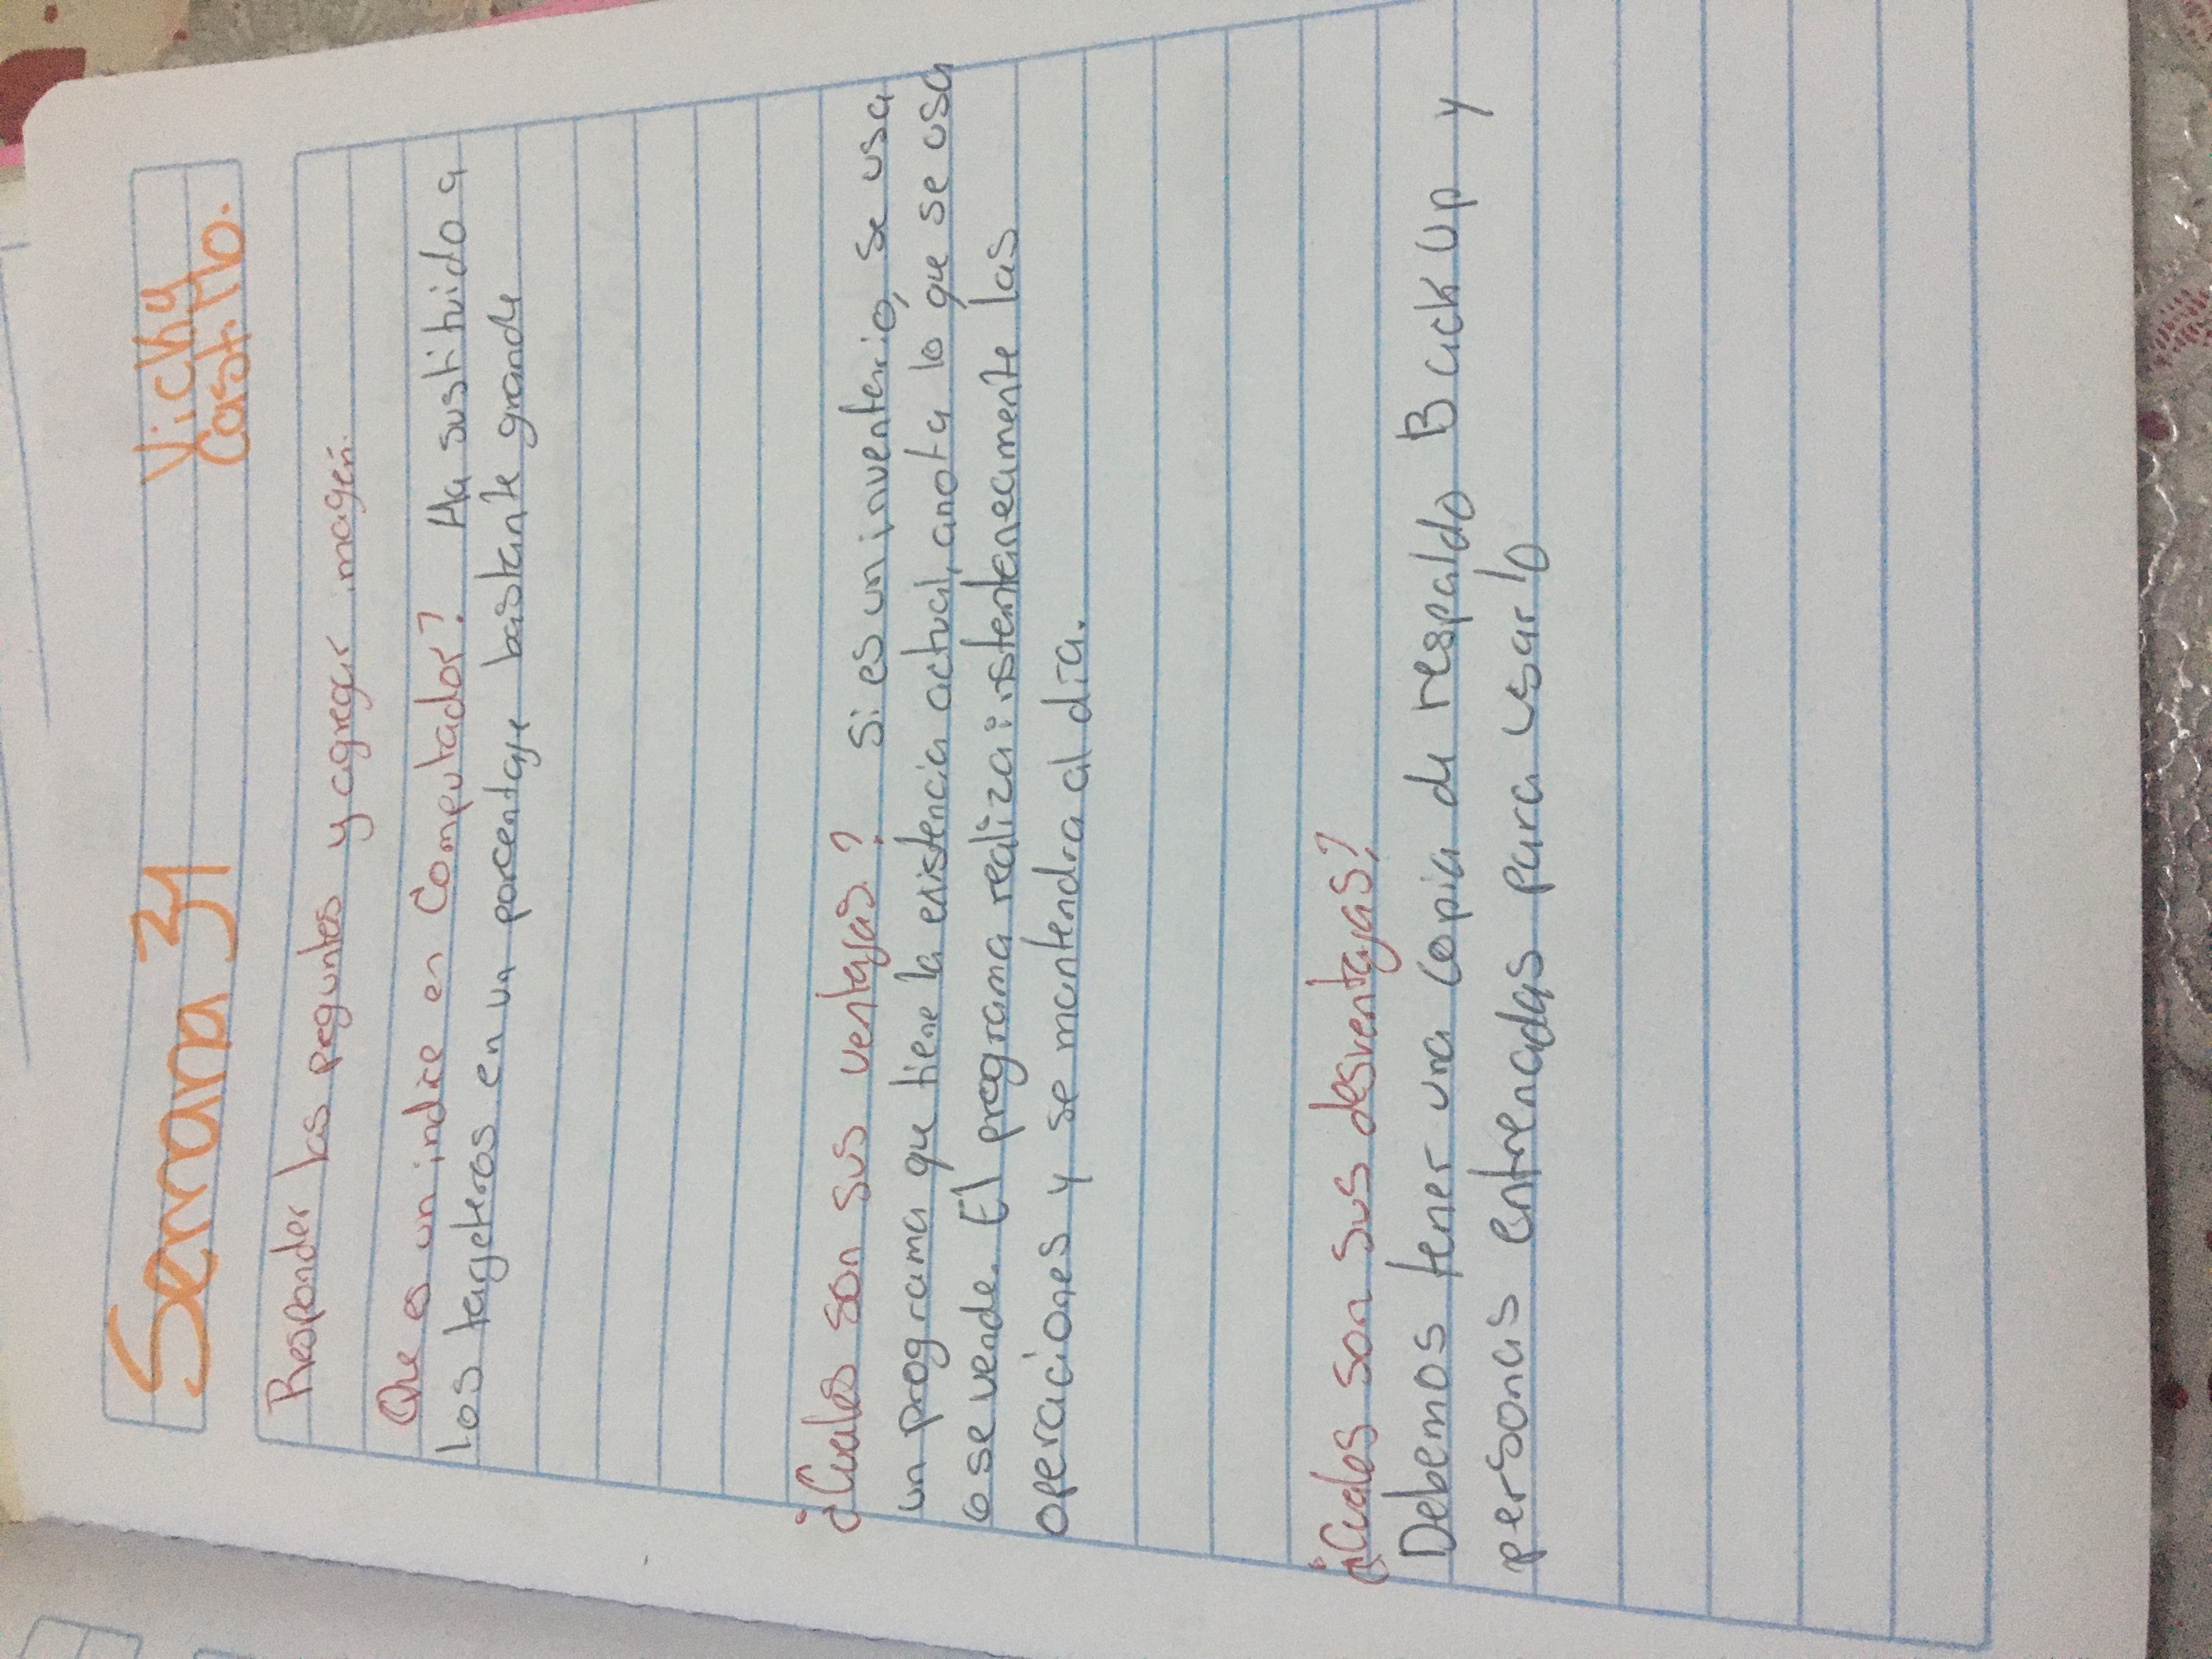 Semana 31
Vicky
Castillo.
Responder las preguntas y agregar imagen.
Que es un indice en Computador? Ha sustituido a
los tarjeteros en un porcentaje bastante grande
¿Cuales son sus ventajas? Si es un inventerio, se usa
un programa que tiene la existencia actual, anota lo que se usa
o se vende. El programa realiza instentaneamente las
operaciones y se mantendra al dia.
¿Cuales son sus desventajas?
Debemos tener una copia de respaldo Back up y
personas entrenadas para usarlo